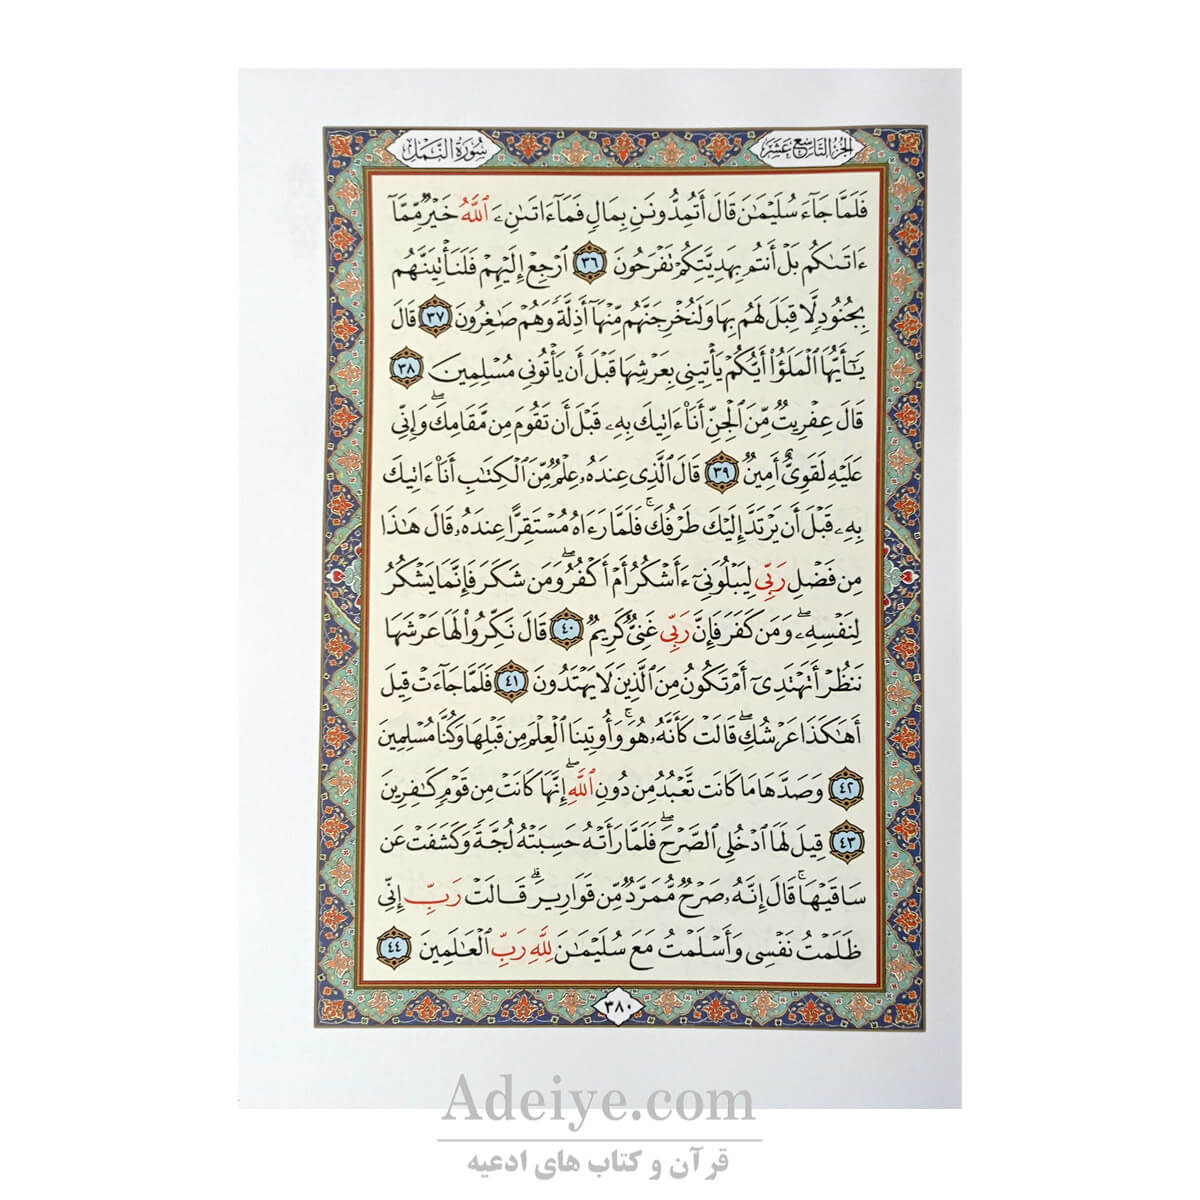 الجزء التاسع عشر
سورة النمل
فَلَمَّا جَآءَ سُلَيْمَٰنَ قَالَ أَتُمِدُّونَنِ بِمَالٍ فَمَآ ءَاتَىٰنِۦَ ٱللَّهُ خَيْرٌ مِّمَّآ
ءَاتَىٰكُم بَلْ أَنتُم بِهَدِيَّتِكُمْ تَفْرَحُونَ ٣٦ ٱرْجِعْ إِلَيْهِمْ فَلَنَأْتِيَنَّهُم
بِجُنُودٍ لَّا قِبَلَ لَهُم بِهَا وَلَنُخْرِجَنَّهُم مِّنْهَآ أَذِلَّةً وَهُمْ صَٰغِرُونَ ٣٧ قَالَ
يَٰٓأَيُّهَا ٱلْمَلَؤُا۟ أَيُّكُمْ يَأْتِينِى بِعَرْشِهَا قَبْلَ أَن يَأْتُونِى مُسْلِمِينَ ٣٨
قَالَ عِفْرِيتٌ مِّنَ ٱلْجِنِّ أَنَا۠ ءَاتِيكَ بِهِۦ قَبْلَ أَن تَقُومَ مِن مَّقَامِكَ ۖ وَإِنِّى
عَلَيْهِ لَقَوِىٌّ أَمِينٌ ٣٩ قَالَ ٱلَّذِى عِندَهُۥ عِلْمٌ مِّنَ ٱلْكِتَٰبِ أَنَا۠ ءَاتِيكَ
بِهِۦ قَبْلَ أَن يَرْتَدَّ إِلَيْكَ طَرْفُكَ ۚ فَلَمَّا رَءَاهُ مُسْتَقِرًّا عِندَهُۥ قَالَ هَٰذَا
مِن فَضْلِ رَبِّى لِيَبْلُوَنِىٓ ءَأَشْكُرُ أَمْ أَكْفُرُ ۖ وَمَن شَكَرَ فَإِنَّمَا يَشْكُرُ
لِنَفْسِهِۦ ۖ وَمَن كَفَرَ فَإِنَّ رَبِّى غَنِىٌّ كَرِيمٌ ٤٠ قَالَ نَكِّرُوا۟ لَهَا عَرْشَهَا
نَنظُرْ أَتَهْتَدِىٓ أَمْ تَكُونُ مِنَ ٱلَّذِينَ لَا يَهْتَدُونَ ٤١ فَلَمَّا جَآءَتْ قِيلَ
أَهَٰكَذَا عَرْشُكِ ۖ قَالَتْ كَأَنَّهُۥ هُوَ ۚ وَأُوتِينَا ٱلْعِلْمَ مِن قَبْلِهَا وَكُنَّا مُسْلِمِينَ
٤٢ وَصَدَّهَا مَا كَانَت تَّعْبُدُ مِن دُونِ ٱللَّهِ ۖ إِنَّهَا كَانَتْ مِن قَوْمٍ كَٰفِرِينَ
٤٣ قِيلَ لَهَا ٱدْخُلِى ٱلصَّرْحَ ۖ فَلَمَّا رَأَتْهُ حَسِبَتْهُ لُجَّةً وَكَشَفَتْ عَن
سَاقَيْهَا ۚ قَالَ إِنَّهُۥ صَرْحٌ مُّمَرَّدٌ مِّن قَوَارِيرَ ۗ قَالَتْ رَبِّ إِنِّى
ظَلَمْتُ نَفْسِى وَأَسْلَمْتُ مَعَ سُلَيْمَٰنَ لِلَّهِ رَبِّ ٱلْعَٰلَمِينَ ٤٤
٣٨٠
Adeiye.com
قرآن و کتاب های ادعیه